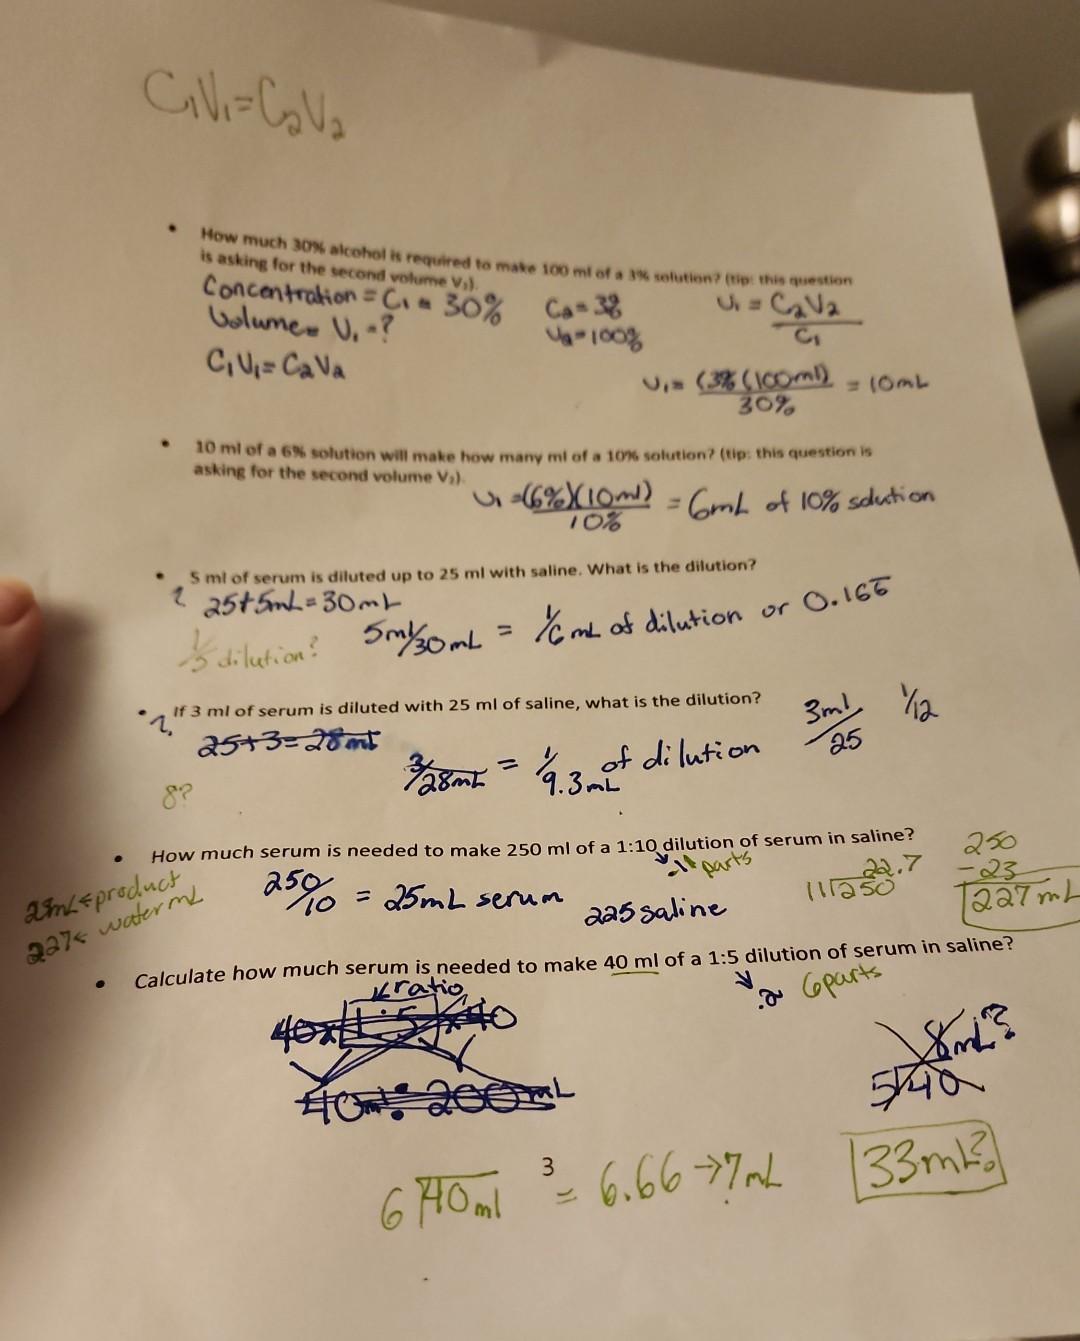 C₁V₁=C₂V₂
• How much 30% alcohol is required to make 100 ml of a 3% solution? (tip: this question
is asking for the second volume V₁).
Concentration = C₁ = 30% C₂=3% V₁ = C₂V₂/C₁
Volume = V₁ =? V₂=100%
C₁V₁=C₂V₂
V₁= (3%(100ml)/30% = 10mL
• 10 ml of a 6% solution will make how many ml of a 10% solution? (tip: this question is
asking for the second volume V₂).
V₁ =(6%)(10ml)/10% = 6mL of 10% solution
• 5 ml of serum is diluted up to 25 ml with saline. What is the dilution?
? 25+5mL=30mL
5ml/30mL = 1/6 mL of dilution or 0.166
1/5 dilution?
• If 3 ml of serum is diluted with 25 ml of saline, what is the dilution?
? 25+3=28ml 3ml/25 1/12
3/28mL = 1/9.3mL of dilution
8?
• How much serum is needed to make 250 ml of a 1:10 dilution of serum in saline?
11 parts
250/10 = 25mL serum 225 saline
22.7
11√250
250
-23
227mL
23mL ← product
227 ← water mL
• Calculate how much serum is needed to make 40 ml of a 1:5 dilution of serum in saline?
ratio 6 parts
40x 1:5 x40
40ml: 200mL
8mL?
5√40
3
6√40ml = 6.66 → 7mL 33mL?